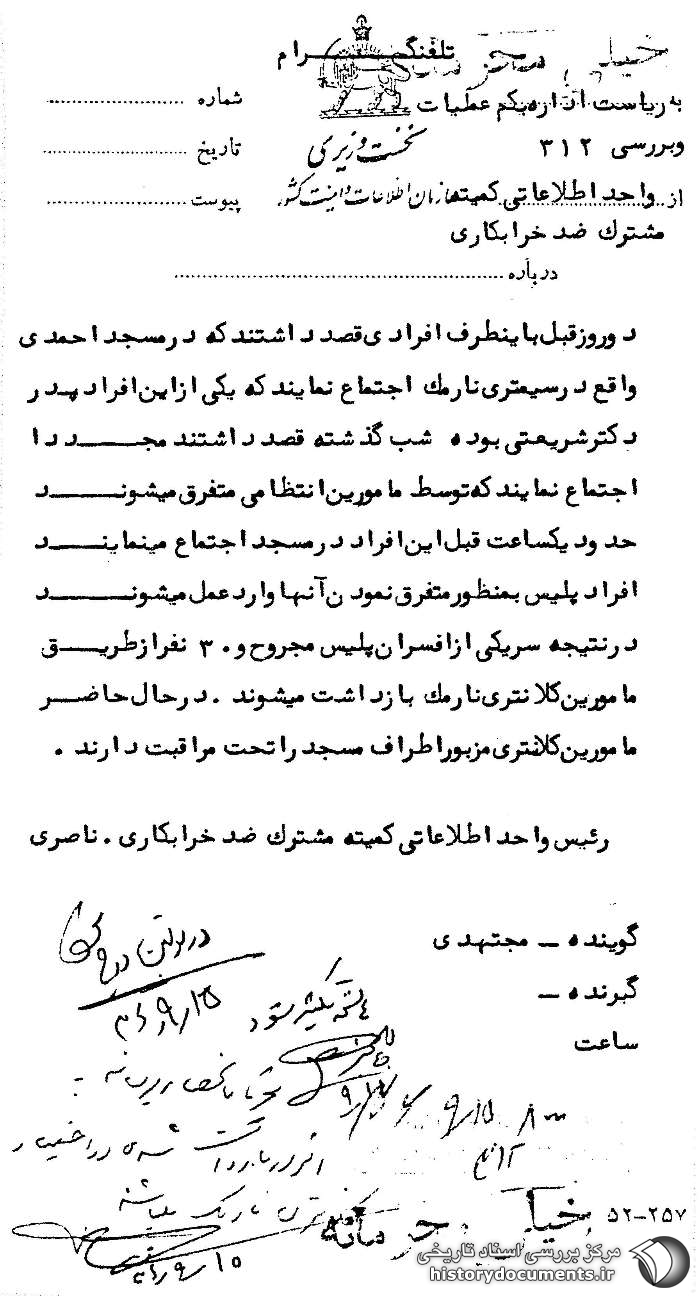 خیلی محرمانه
تلفنگرام
به ریاست اداره یکم عملیات
شماره
وبررسی ۳۱۲
نخست وزیری
تاریخ
از واحد اطلاعاتی کمیته
سازمان اطلاعات و امنیت کشور
پیوست
مشترك ضد خرابکاری
درباره
دوروز قبل باینطرف افرادی قصد داشتند که درمسجد احمدی
واقع درسیمتری نارمك اجتماع نمایند که یکی ازاین افراد پدر
دکترشریعتی بوده شب گذشته قصد داشتند مجددا
اجتماع نمایند که توسط مامورین انتظامی متفرق میشوند
حدود یکساعت قبل این افراد درمسجد اجتماع مینمایند
افراد پلیس بمنظور متفرق نمودن آنها وارد عمل میشوند
درنتیجه سریکی ازافسران پلیس مجروح و ۳۰ نفر ازطریق
مامورین کلانتری نارمك بازداشت میشوند . درحال حاضر
مامورین کلانتری مزبور اطراف مسجد را تحت مراقبت دارند .
رئیس واحد اطلاعاتی کمیته مشترك ضد خرابکاری . ناصری
گوینده – مجتهدی
در بولتن درج
گیرنده –
۳۶/۹/۱۵
ساعت
۹/۱۵
۸۰۰
خیلی محرمانه
۵۲-۲۵۷
۳۶/۹/۱۵
مرکز بررسی اسناد تاریخی
historydocuments.ir